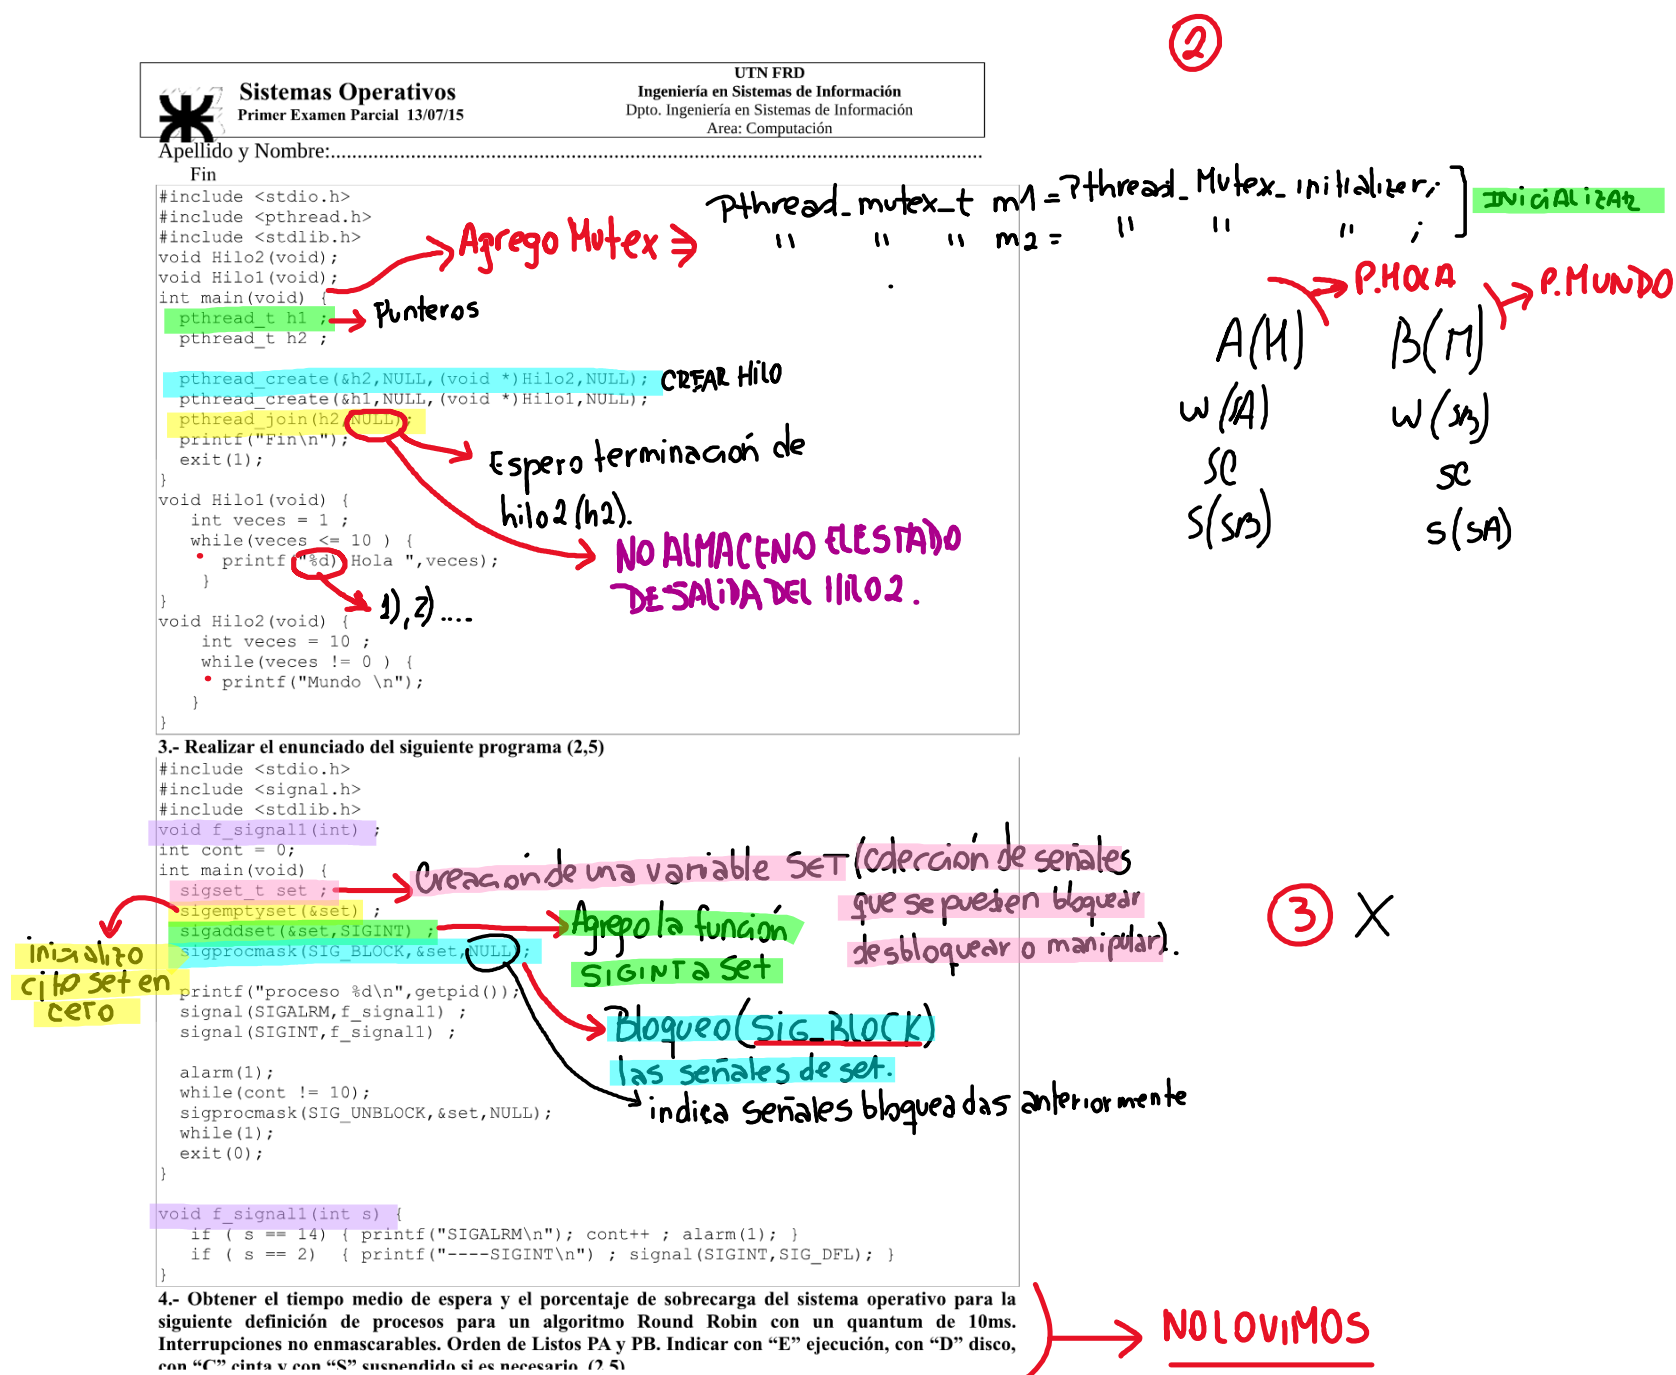 ②
Sistemas Operativos
Primer Examen Parcial 13/07/15
UTN FRD
Ingeniería en Sistemas de Información
Dpto. Ingeniería en Sistemas de Información
Area: Computación
Apellido y Nombre:............................................................
Fin
#include <stdio.h>
#include <pthread.h>
#include <stdlib.h>
void Hilo2(void);
void Hilo1(void);
int main(void) {
pthread_t h1 ;
pthread_t h2 ;
pthread_create(&h2,NULL,(void *)Hilo2,NULL);
pthread_create(&h1,NULL,(void *)Hilo1,NULL);
pthread_join(h2,NULL);
printf("Fin\n");
exit(1);
}
void Hilo1(void) {
int veces = 1 ;
while(veces <= 10 ) {
printf("%d) Hola ",veces);
}
}
void Hilo2(void) {
int veces = 10 ;
while(veces != 0 ) {
printf("Mundo \n");
}
}
Agrego Mutex ⇒
Pthread_mutex_t m1 = Pthread_Mutex_initializer;
" " " m2 = " " " ;
INICIALIZAR
Punteros
CREAR HILO
Espero terminación de
hilo2 (h2).
NO ALMACENO EL ESTADO
DE SALIDA DEL HILO 2.
1), 2) ....
P.HOLA
P.MUNDO
A(H) B(M)
W(SA) W(SB)
SC SC
S(SB) S(SA)
3.- Realizar el enunciado del siguiente programa (2,5)
#include <stdio.h>
#include <signal.h>
#include <stdlib.h>
void f_signal1(int) ;
int cont = 0;
int main(void) {
sigset_t set ;
sigemptyset(&set) ;
sigaddset(&set,SIGINT) ;
sigprocmask(SIG_BLOCK,&set,NULL);
printf("proceso %d\n",getpid());
signal(SIGALRM,f_signal1) ;
signal(SIGINT,f_signal1) ;
alarm(1);
while(cont != 10);
sigprocmask(SIG_UNBLOCK,&set,NULL);
while(1);
exit(0);
}
void f_signal1(int s) {
if ( s == 14) { printf("SIGALRM\n"); cont++ ; alarm(1); }
if ( s == 2) { printf("----SIGINT\n") ; signal(SIGINT,SIG_DFL); }
}
Creación de una variable SET (colección de señales
que se pueden bloquear
desbloquear o manipular).
Agrego la función
SIGINT a Set
inicializo
cjto set en
cero
Bloqueo (SIG_BLOCK)
las señales de set.
indica señales bloqueadas anteriormente
③ X
4.- Obtener el tiempo medio de espera y el porcentaje de sobrecarga del sistema operativo para la
siguiente definición de procesos para un algoritmo Round Robin con un quantum de 10ms.
Interrupciones no enmascarables. Orden de Listos PA y PB. Indicar con “E” ejecución, con “D” disco,
con “C” cinta y con “S” suspendido si es necesario. (2,5)
NO LO VIMOS